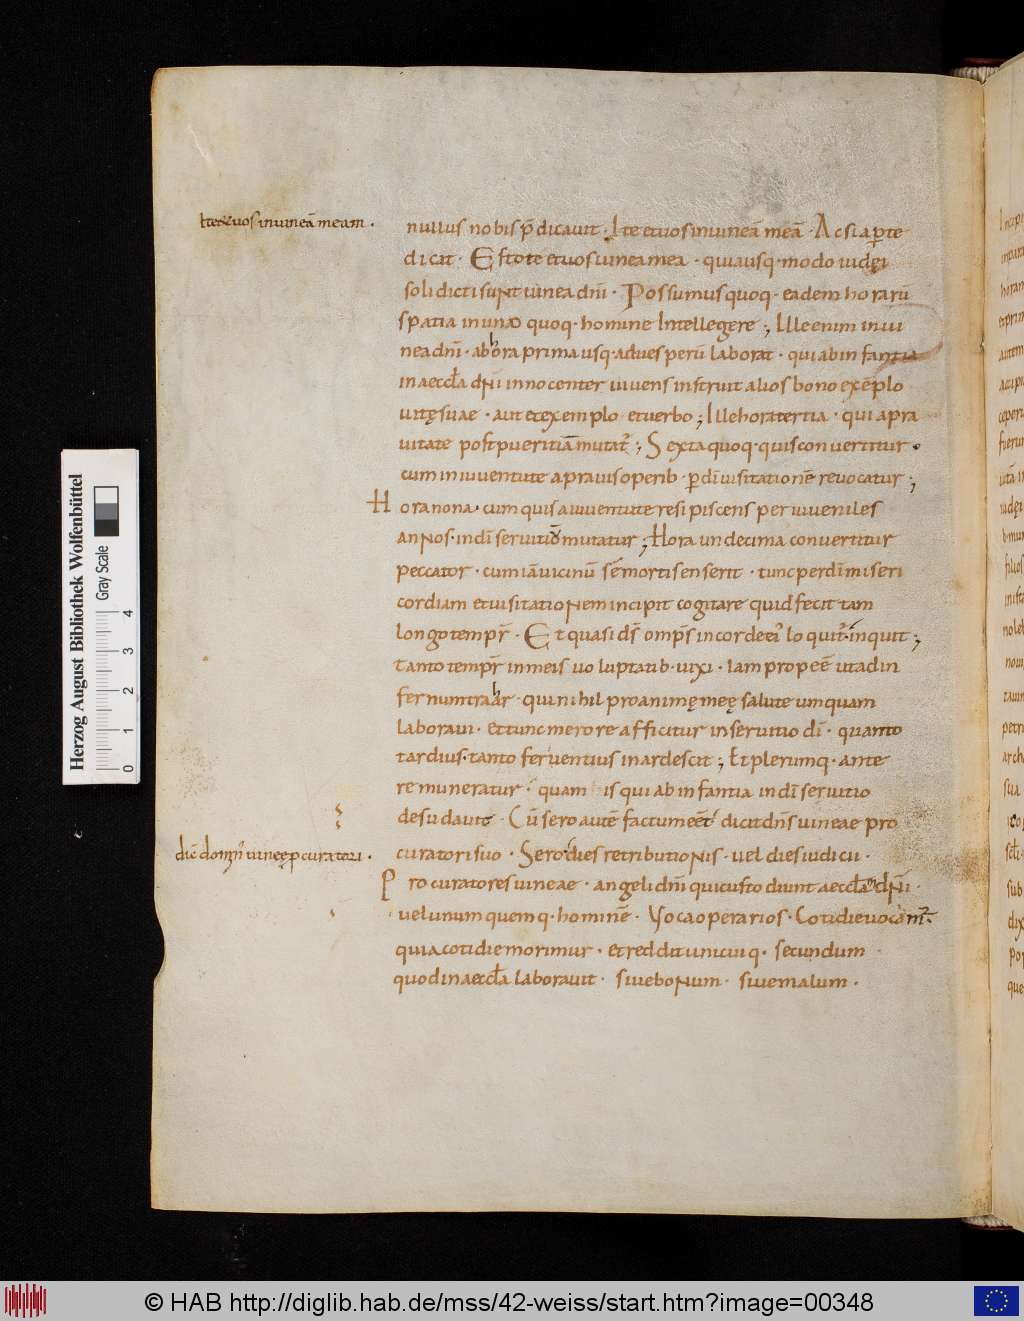 Ite et uos in uineā meam .
nullus nobis p̄dicauit . Ite et uos in uineā meā . Ac si aperte
dicit . Estote et uos uinea mea . quia usq . modo iudęi
soli dicti suNt uinea dn̄i . Possumus quoq . eadem horarū
spatia in uno quoq . homine Intellegere ; Ille enim in ui
nea dn̄i . ab hora prima usq . ad uesperū laborat . qui ab infantia
in aeccl̄a dN̄i innocenter uiuens instruit alios bono exēplo
uitę suae . aut et exemplo et uerbo ; Ille hora tertia . qui a pra
uitate post pueritiā mutat̄ ; Sexta quoq . quis conuertitur .
cum in iuuentute a prauis operib . p dī uisitationē reuocatur ;
Hora nona . cum quis a iuuentute resipiscens per iuueniles
aNNos . in dī seruitiū mutatur ; Hora undecima conuertitur
peccator . cum iā uicinū se morti senserit . tunc per dī miseri
cordiam et uisitatioNem incipit cogitare quid fecit tam
longo tempr̄ . Et quasi ds̄ omps̄ in corde ei' loquit̄ . inquit ;
tanto tempr̄ in meis uoluptatib . uixi . Iam prope ē ut ad in
fernum trahar . qui nihil pro animę meę salute umquam
laboraui . et tunc merore afficitur in seruitio dī . quanto
tardius . tanto feruentius inardescit ; Et plerumq . ante
remuneratur . quam is qui ab infantia in dī seruitio
desudauit . Cū sero autē factum eēt dicit dn̄s uineae pro
dic̄ domin' uineę pcuratori .
curatori suo . Sero dies retributioNis . uel dies iudicii .
Procuratores uineae . angeli dn̄i qui custodiunt aeccl̄am dN̄i .
uel unum quemq . hominē . Voca operarios . Cotidie uocam̄ .
quia cotidie morimur . et reddit unicuiq . secundum
quod in aeccl̄a laborauit . siue boNum . siue malum .
Herzog August Bibliothek Wolfenbüttel
Gray Scale
0 1 2 3 4
© HAB http://diglib.hab.de/mss/42-weiss/start.htm?image=00348